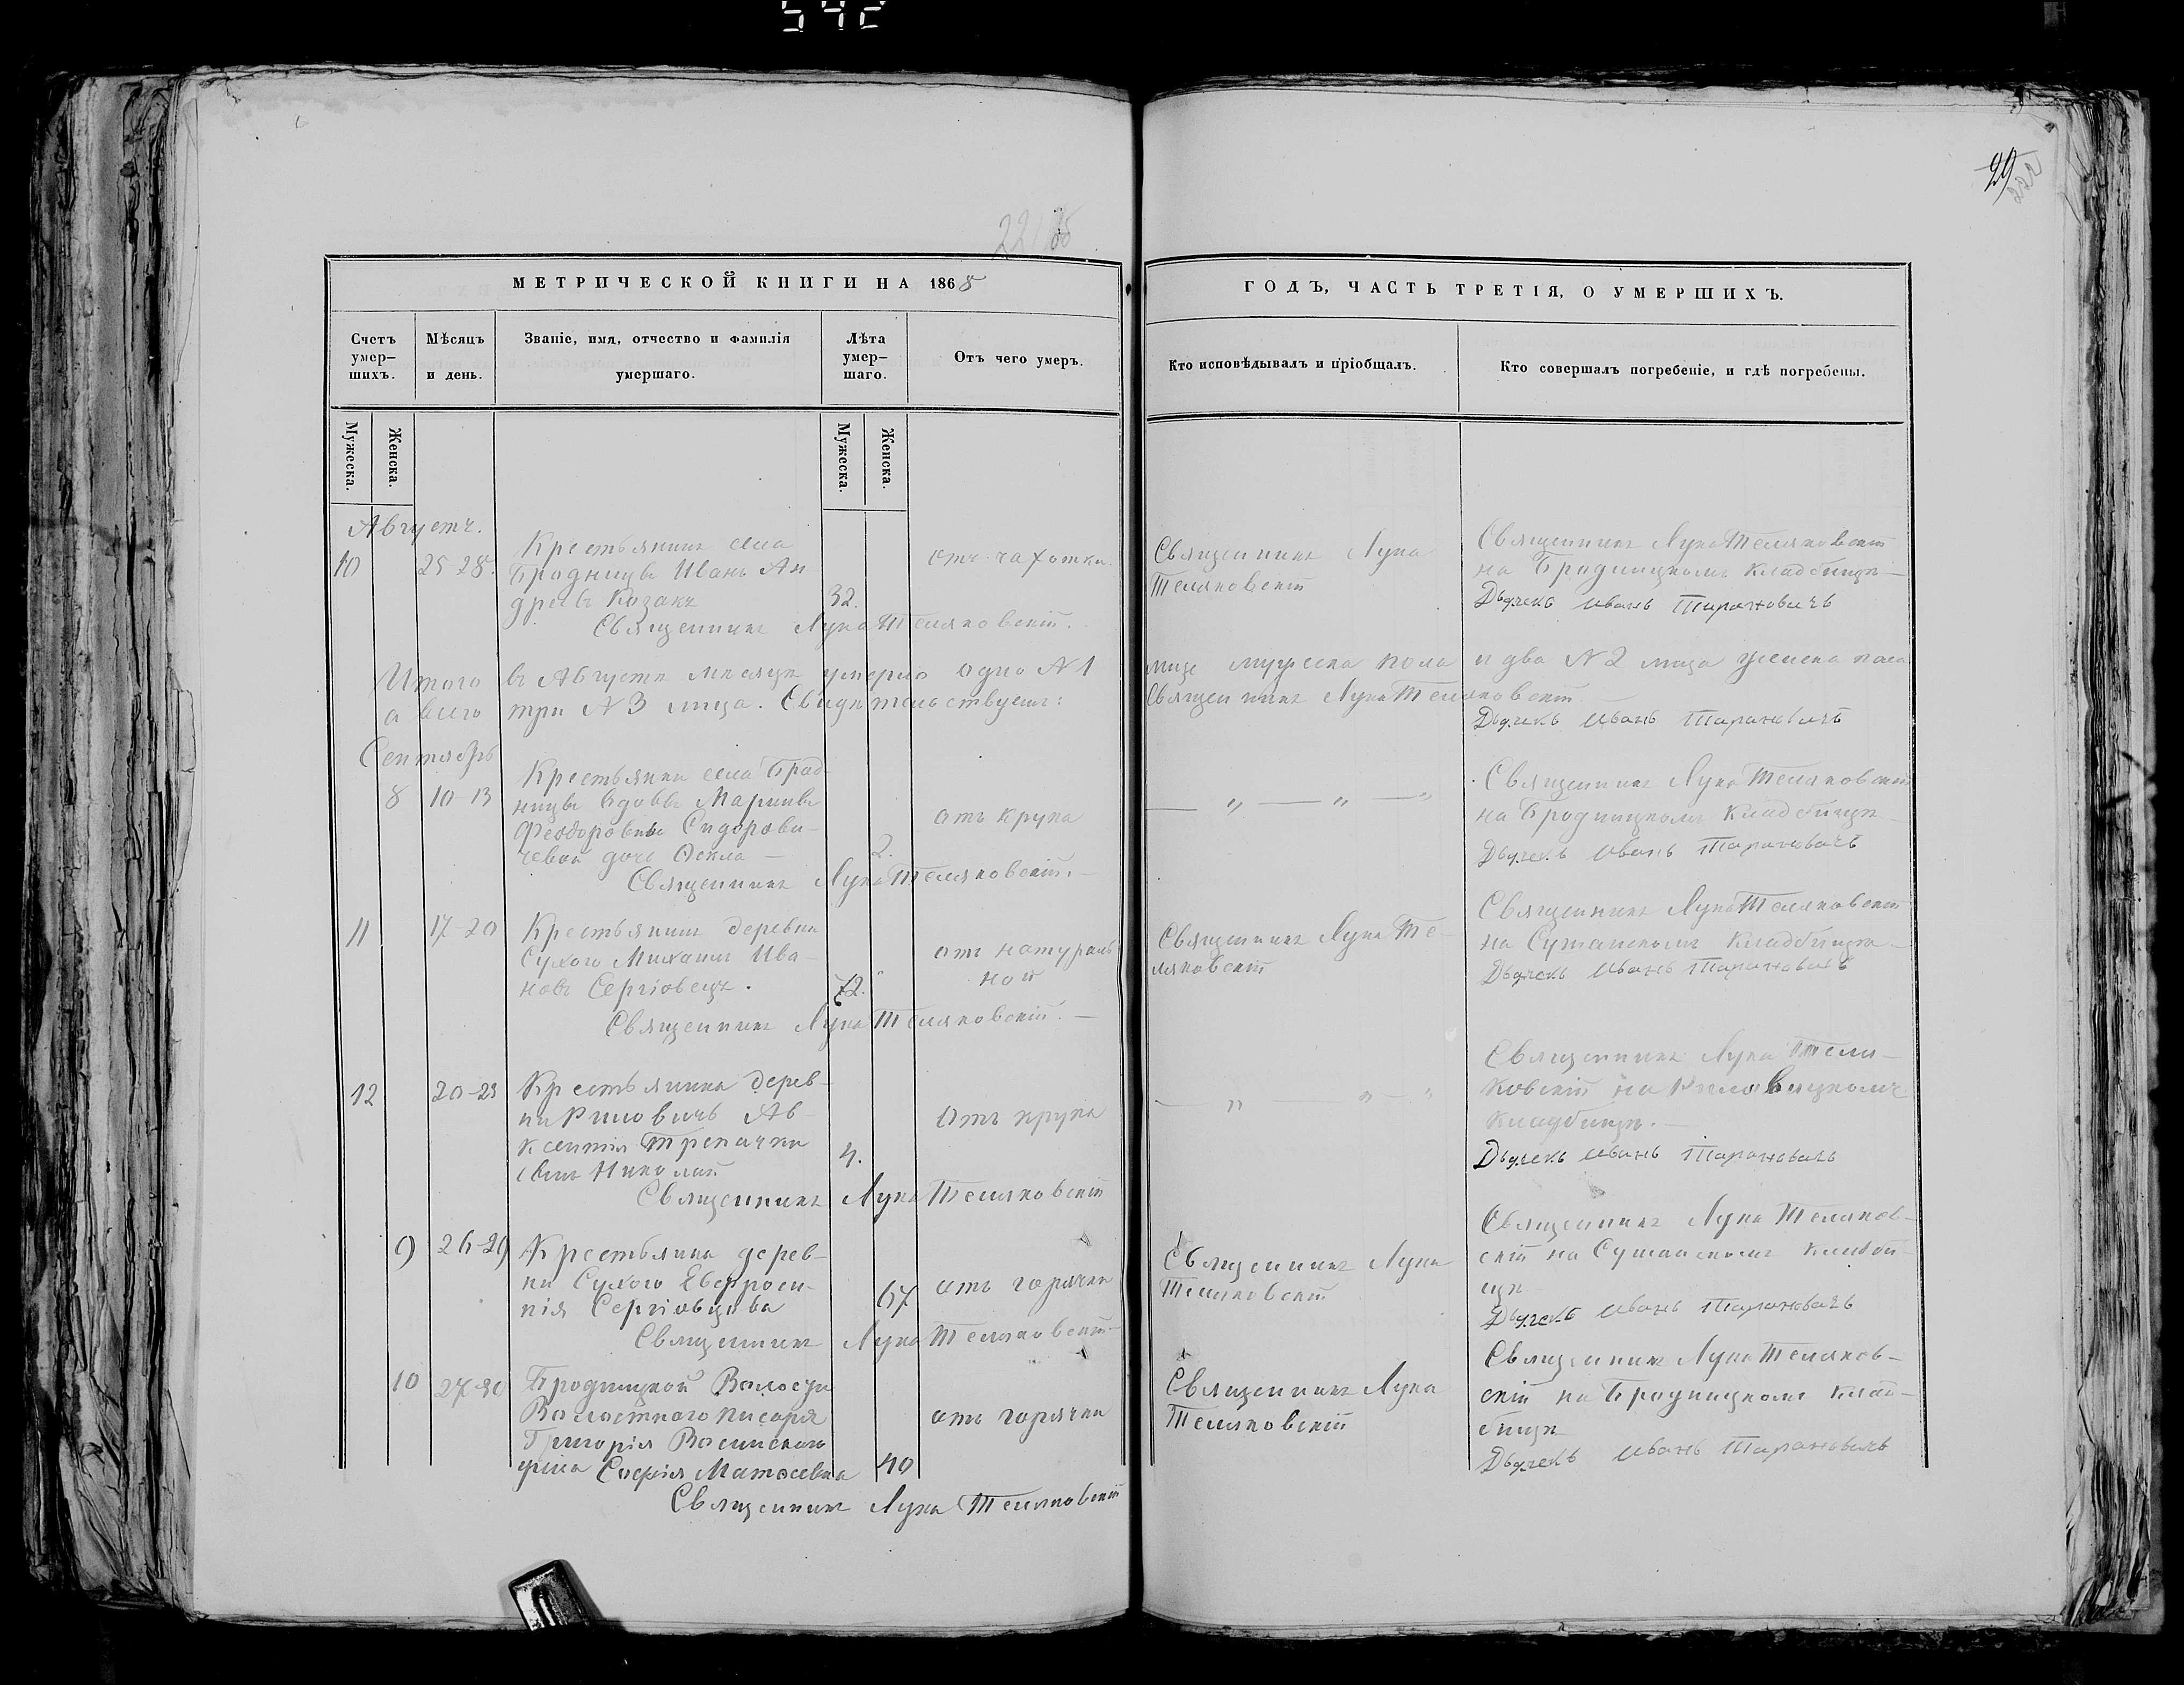 542
29
222
МЕТРИЧЕСКОЙ КНИГИ НА 1868
Счетъ умер-шихъ.
Мѣсяцъ и день.
Званіе, имя, отчество и фамилія умершаго.
Лѣта умер-шаго.
Отъ чего умеръ.
Мужеска.
Женска.
Мужеска.
Женска.
Августъ.
10 25 28.
Крестьянинъ села
Бродницы Иванъ Ан-
дреевъ Козакъ 32.
отъ чахотки.
Священникъ Лука Теляковскій.
Итого въ Августѣ мѣсяцѣ умерло одно N 1
а всего три N 3 лица. Свидѣтельствуемъ:
Сентябрь
8 10-13
Крестьянки села Брод-
ницы вдовы Марины
Феодоровны Сидорови-
чевой дочь Ѳекла — 2.
отъ крупа
Священникъ Лука Теляковскій. —
11 17-20
Крестьянинъ деревни
Сухого Михаилъ Ива-
новъ Сергіовецъ. 72.
отъ натураль
ной
Священникъ Лука Теляковскій. —
12 20-23
Крестьянина дерев-
ни
Ав-
ксентія
сынъ Николай 4.
отъ крупа
Священникъ Лука Теляковскій
9 26-29
Крестьянка дерев-
ни Сухого Евфроси-
нія Сергіовцова 67
отъ горячки
Священникъ Лука Теляковскій
10 27-30
Бродницкой Волости
Волостного писаря
Григорія
жена Софія Матѳеевна 40
отъ горячки
Священникъ Лука Теляковскій
ГОДЪ, ЧАСТЬ ТРЕТІЯ, О УМЕРШИХЪ.
Кто исповѣдывалъ и пріобщалъ.
Кто совершалъ погребеніе, и гдѣ погребены.
Священникъ Лука
Теляковскій
Священникъ Лука Теляковскій
на Бродницкомъ кладбищѣ —
Дьячекъ Иванъ Тарановичъ
лице мужеска пола и два N 2 лица женска пола
Священникъ Лука Теляковскій
Дьячекъ Иванъ Тарановичъ
— „ — „ — „
Священникъ Лука Теляковскій
на Бродницкомъ кладбищѣ
Дьячекъ Иванъ Тарановичъ
Священникъ Лука Те-
ляковскій
Священникъ Лука Теляковскій
на кладбищѣ —
Дьячекъ Иванъ Тарановичъ
— „ — „ — „
Священникъ Лука Теля-
ковскій на
кладбищѣ. —
Дьячекъ Иванъ Тарановичъ
Священникъ Лука
Теляковскій
Священникъ Лука Теляков-
скій на кладби-
щѣ
Дьячекъ Иванъ Тарановичъ
Священникъ Лука
Теляковскій
Священникъ Лука Теляков-
скій на Бродницкомъ клад-
бищѣ
Дьячекъ Иванъ Тарановичъ